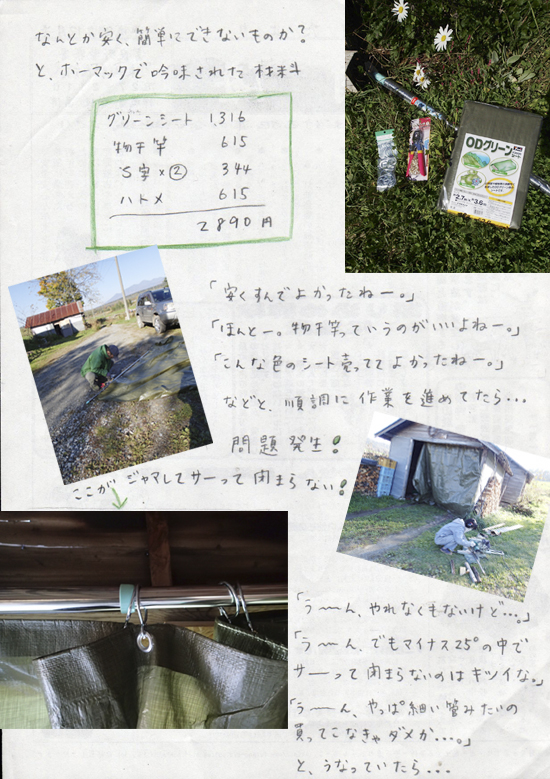 なんとか安く、簡単にできないものか?
と、ホーマックで吟味された材料
グリーンシート 1,316
物干竿 615
S字×② 344
ハトメ 615
2890円
ODグリーン
2.7m×3.6m
「安くすんでよかったねー。」
「ほんとー。物干竿っていうのがいいよねー。」
「こんな色のシート売っててよかったねー。」
などと、順調に作業を進めてたら・・・
問題発生!
ここがジャマしてサーって閉まらない!
「うーーん、やれなくもないけど・・・。」
「うーーん、でもマイナス25°の中で
サーーって閉まらないのはキツイな。」
「うーーん、やっぱ細い管みたいの
買ってこなきゃダメか・・・。」
と、うなっていたら・・・